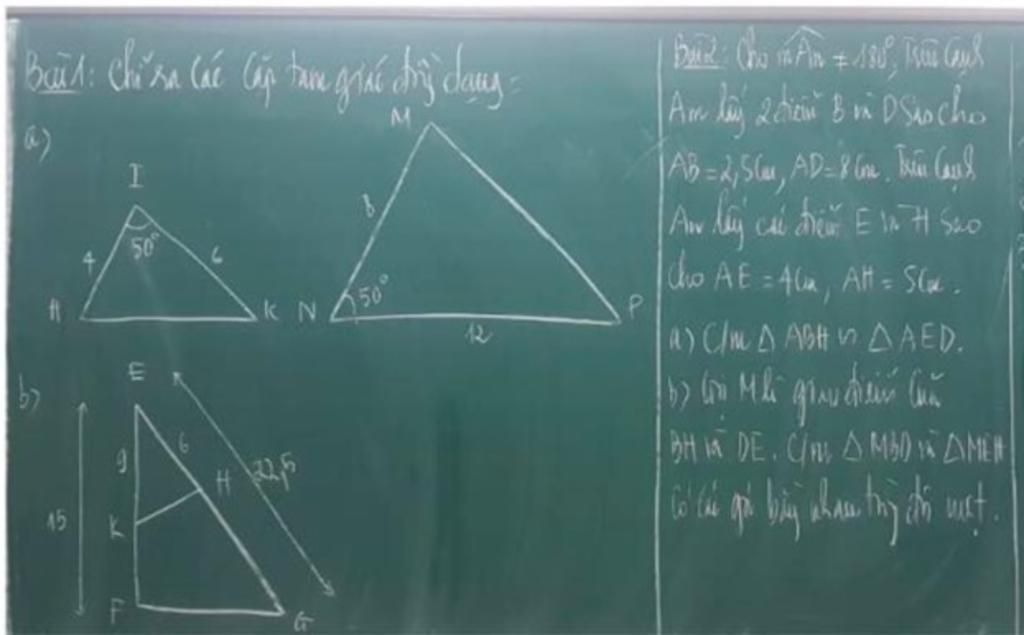 Bài 1: Chỉ ra các cặp tam giác đồng dạng:
a)
M
I
50°
4
6
H
K
8
N
50°
12
P
b)
E
9
6
H
22,5
15
K
F
G
Bài 2: Cho mAn ≠ 180°, Trên cạnh
Am lấy 2 điểm B và D sao cho
AB = 2,5cm, AD = 8cm. Trên cạnh
An lấy các điểm E và H sao
cho AE = 4cm, AH = 5cm.
a) C/m Δ ABH ∽ Δ AED.
b) Gọi M là giao điểm của
BH và DE. C/m Δ MBD và Δ MEH
có các góc bằng nhau từng đôi một.